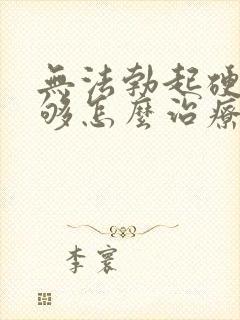 無法勃起硬
够怎麼治療
李寰